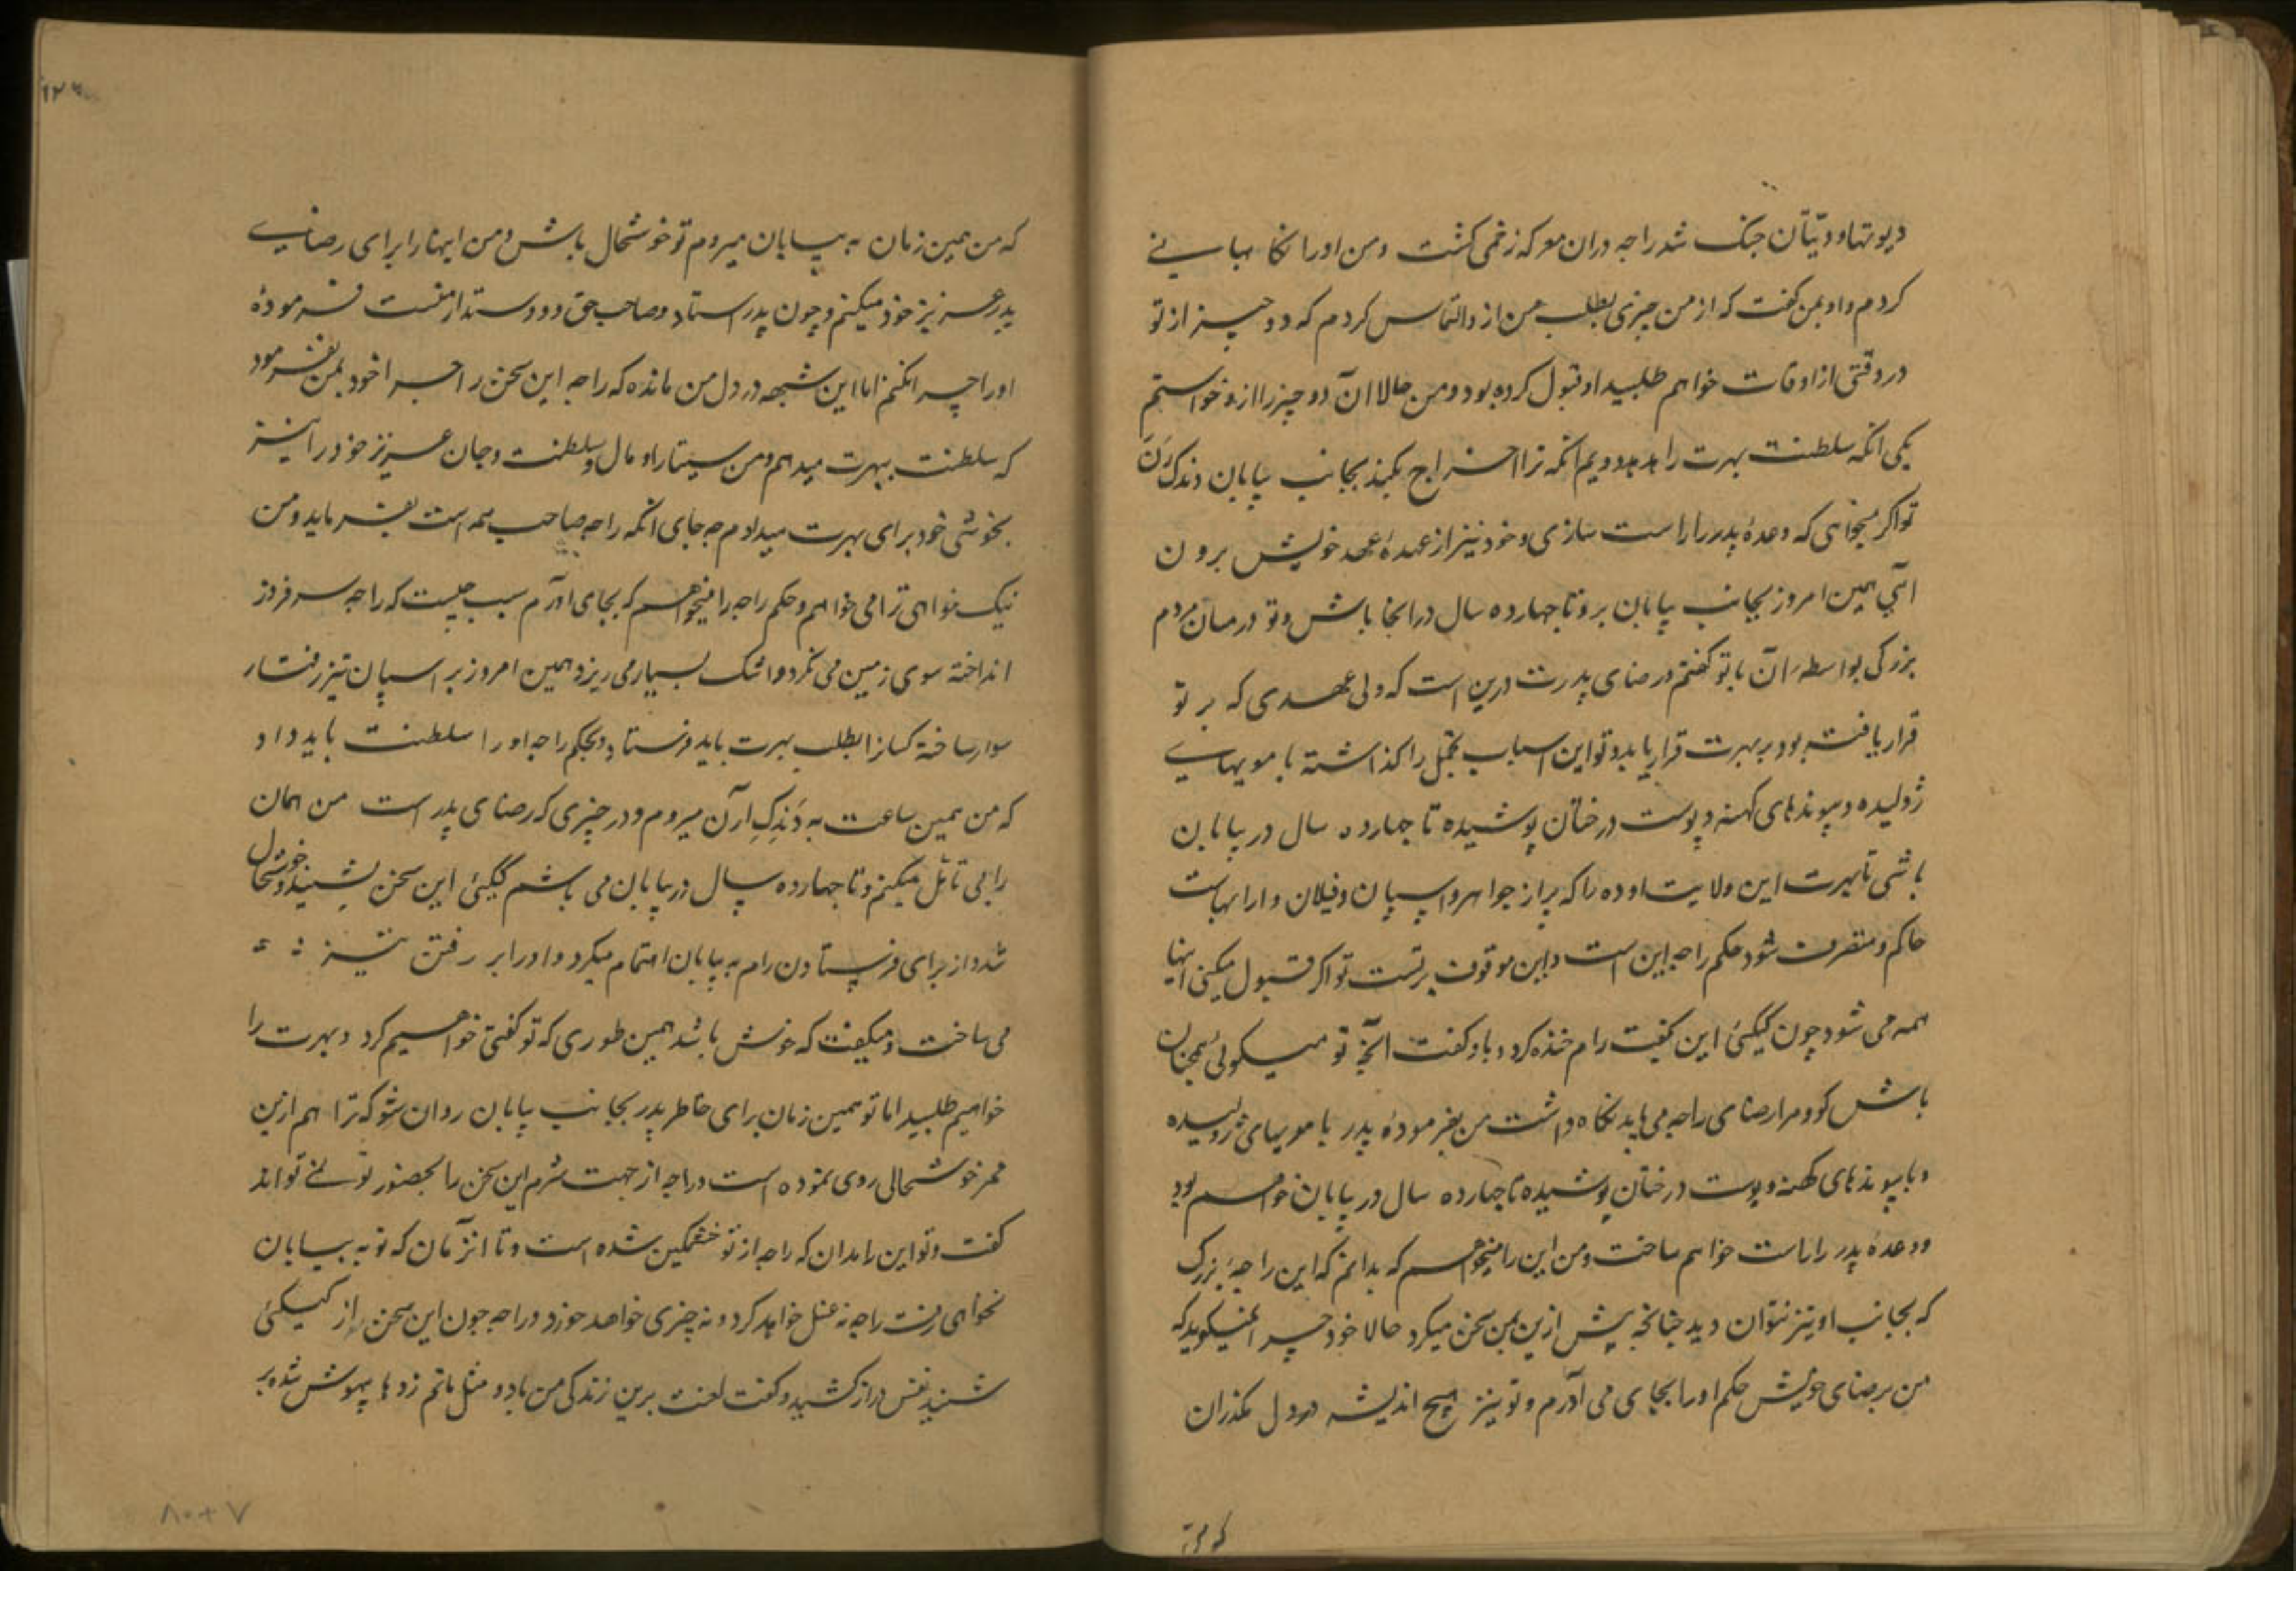 دیوتها و دیتان جنگ شد راجه دران معرکه زخمی کشت ومن اورا نکاهبانے
کردم و او بمن کفت که از من چیزی بطلب من از و التماس کردم که دو چیز از تو
در وقتی از اوقات خواهم طلبید او قبول کرده بود ومن حالا آن دو چیز را ازو خواستم
یکی آنکه سلطنت بهرت را بدهد دویم آنکه ترا اخراج بکند بجانب بیابان دندک رَن
تو اکر میخواهی که وعدهٔ پدر را راست سازی و خود نیز از عهدهٔ عهد خویش برون
آئی همین امروز بجانب بیابان برو تا چهارده سال در آنجا باش و تو در میان مردم
بزرکی بواسطهٔ آن با تو کفتم و رضای پدرت درین است که ولی عهدی که بر تو
قرار یافته بود بر بهرت قرار یابد و تو این اسباب تجمل را کذاشته با مویهایے
ژولیده و پیوندهای کهنه و پوست درختان پوشیده تا چهارده سال در بیابان
باشی تا بهرت این ولایت اوده را که پر از جواهر و اسپان و فیلان و ارابهاست
حاکم و متصرف شود حکم راجه این است و این موقوف بر تست تو اکر قبول میکنی اینها
همه می شود چون کیکئی این کفیت رام خنده کرد و باو کفت آنچه تو میکوئی همچنان
باش کو و مرا رضای راجه می باید نکاه داشت من بفرمودهٔ پدر با مویهای ژولیده
و با پیوندهای کهنه و پوست درختان پوشیده تا چهارده سال در بیابان خواهم بود
و وعدهٔ پدر را راست خواهم ساخت ومن این را میخواهم که بدانم که این راجهٔ بزرک
که بجانب او تیز نتوان دید چنانچه پیش ازین بمن سخن میکرد حالا خود چرا نمیکوید که
من برضای خویش حکم او را بجای می آرم و تو نیز هیچ اندیشه در دل مکذران
که من
که من همین زمان به بیابان میروم تو خوشحال باش ومن اینها را برای رضایے
پدر عزیز خود میکنم و چون پدر استاد و صاحب حق و دوستدار منست فرمودهٔ
او را چرا نکنم اما این شبهه در دل من مانده که راجه این سخن را چرا خود بمن نفرمود
که سلطنت ببهرت میدهم ومن سیتا را و مال و سلطنت و جان عزیز خود را نیز
بخوشی خود برای بهرت میدادم چه جای آنکه راجه صاحب همه است بفرماید ومن
نیک خواهی ترا می خواهم و حکم راجه را میخواهم که بجای آورم سبب چیست که راجه سر فرود
انداخته سوی زمین می نکرد و اشک بسیار می ریزد همین امروز بر اسپان تیز رفتار
سوار ساخته کسانرا بطلب بهرت باید فرستاد و بحکم راجه او را سلطنت باید داد
که من همین ساعت به دَندک ارَن میروم و در چیزی که رضای پدر است من همان
را بی تأمل میکنم و تا چهارده سال در بیابان می باشم کیکئی این سخن بشنید و خوشحال
شد و از برای فرستادن رام به بیابان اهتمام میکرد و او را بر رفتن تیز
می ساخت و میکفت که خوش باشد همین طوری که تو کفتی خواهیم کرد و بهرت را
خواهیم طلبید اما تو همین زمان برای خاطر پدر بجانب بیابان روان شو که ترا هم ازین
ممر خوشحالی روی نموده است و راجه از جهت شرم این سخن را بحضور تو نمے تواند
کفت و تو این را مدان که راجه از تو خشمکین شده است و تا آنزمان که تو به بیابان
نخواهی رفت راجه نه غسل خواهد کرد و نه چیزی خواهد خورد و راجه چون این سخن را از کیکئی
شنید نفس دراز کشید و کفت لعنت برین زندکی من باد و مثل ماتم زدها بیهوش شده بر
۸۰۰۷